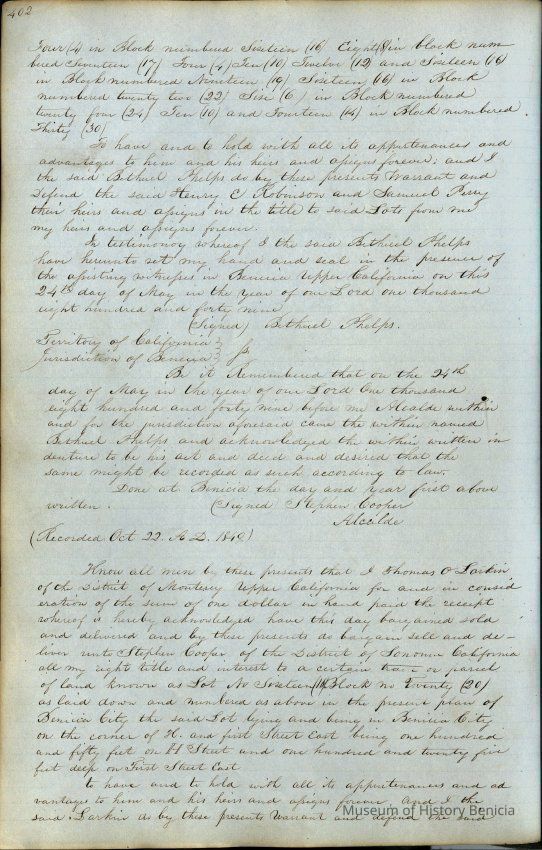 402
Four (4 in Block numbered Sixteen (16) Eight (8) in block num-
bered Seventeen (17) Four (4) Ten (10) Twelve (12) and Sixteen (16)
in Block numbered Nineteen (19) Sixteen (16) in Block
numbered twenty two (22) Six (6) in Block numbered
twenty four (24) Ten (10) and Fourteen (14) in Block numbered
Thirty (30)
To have and to hold with all its appurtenances and
advantages to him and his heirs and assigns forever; and I
the said Bethuel Phelps do by these presents Warrant and
Defend the said Henry C Robinson and Samuel Perry
their heirs and assigns in the title to said Lots from me
my heirs and assigns forever.
In testimony whereof I the said Bethuel Phelps
have hereunto set my hand and seal in the presence of
the assisting witnesses in Benicia Upper California on this
24th day of May in the year of our Lord one thousand
eight hundred and forty nine
(Signed) Bethuel Phelps.
Territory of California }
Jurisdiction of Benicia } ss
Be it Remembered that on the 24th
day of May in the year of our Lord One thousand
eight hundred and forty nine before me Alcalde within
and for the jurisdiction aforesaid came the within named
Bethuel Phelps and acknowledged the within written in
denture to be his act and deed and desired that the
same might be recorded as such according to law.
Done at Benicia the day and year first above
written. (Signed Stephen Cooper
Alcalde
(Recorded Oct 22. A.D. 1849)
Know all men by these presents that I Thomas O Larkin
of the District of Monterey Upper California for and in consid
eration of the sum of one dollar in hand paid the receipt
whereof is hereby acknowledged have this day bargained sold
and delivered and by these presents do bargain sell and de-
liver unto Stephen Cooper of the District of Sonoma California
all my right title and interest to a certain tract or parcel
of land known as Lot No Sixteen (16) Block no Twenty (20)
as laid down and numbered as above in the present plan of
Benicia City the said Lot lying and being in Benicia City
on the corner of H. and first Street East being one hundred
and fifty feet on H Street and one hundred and twenty five
feet deep on First Street East
to have and to hold with all its appurtenances and ad
vantages to him and his heirs and assigns forever And I the
said Larkin do by these presents Warrant and defend the said
Museum of History Benicia